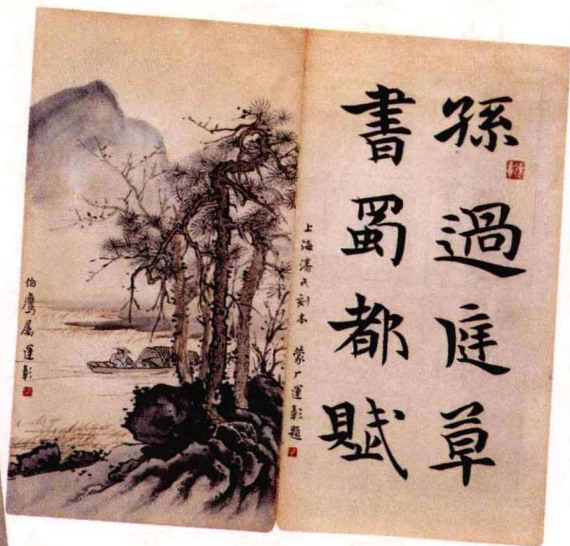 孫過庭草
書蜀都賦
上海潘氏刻本 蒙厂運彰題
伯鷹屬運彰